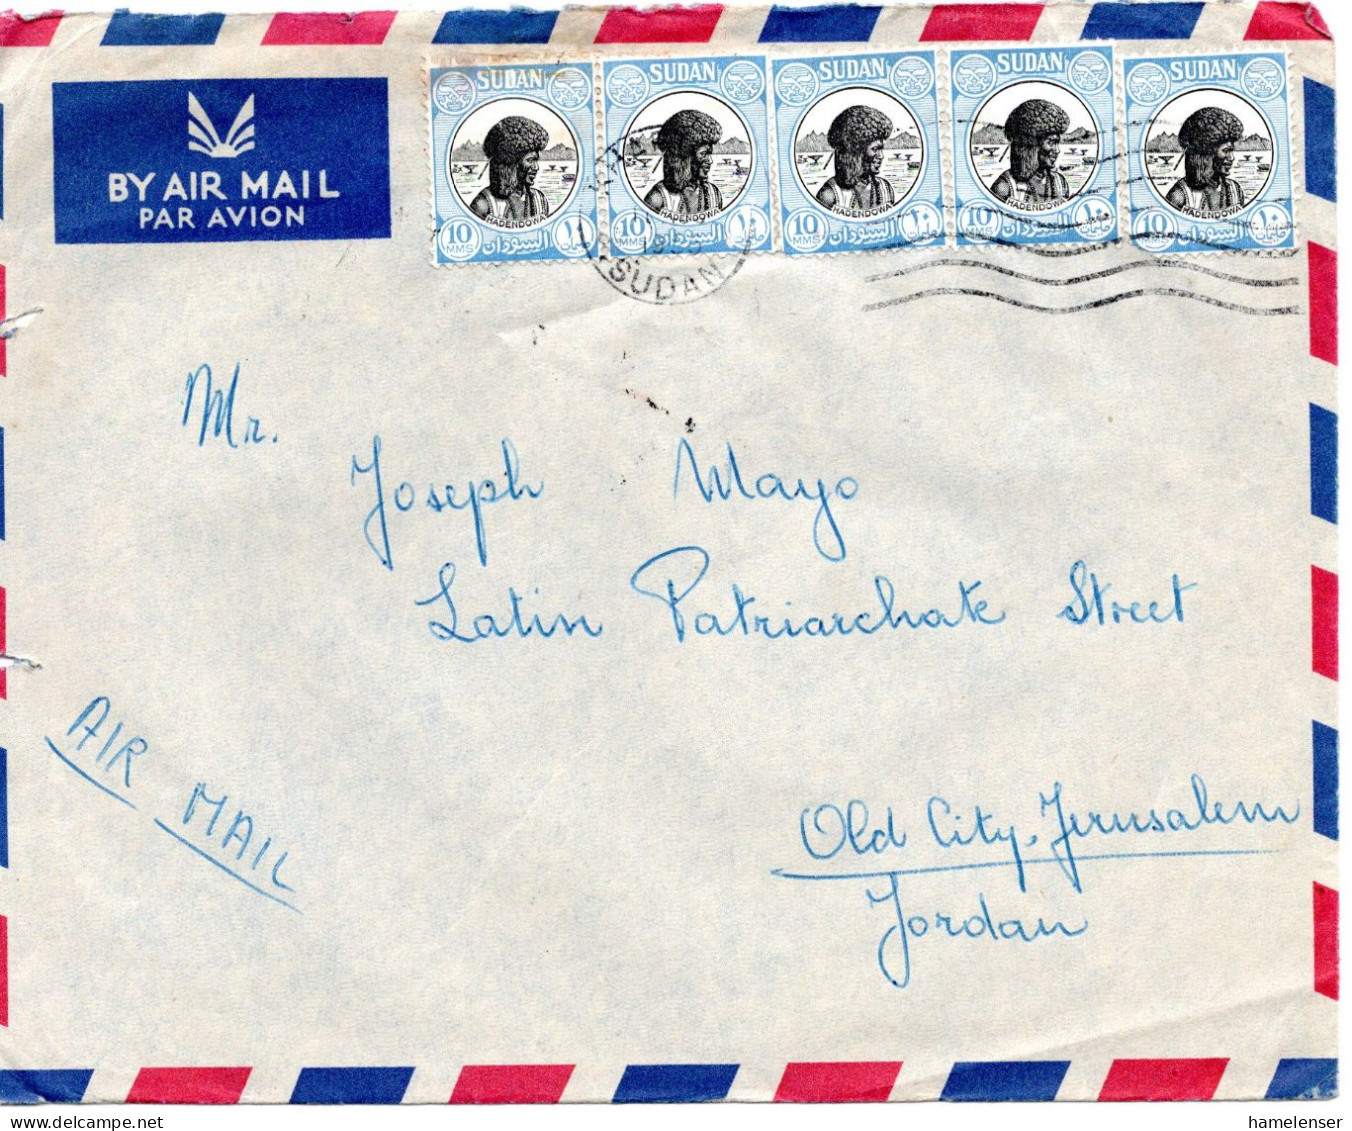 SUDAN SUDAN SUDAN SUDAN SUDAN
HADENDOWA HADENDOWA HADENDOWA HADENDOWA HADENDOWA
10 MMS السودان ١٠ مليمات
10 MMS السودان ١٠ مليمات
10 MMS السودان ١٠ مليمات
10 MMS السودان ١٠ مليمات
10 MMS السودان ١٠ مليمات
BY AIR MAIL
PAR AVION
SUDAN
Mr.
Joseph Mayo
Latin Patriarchate Street
AIR MAIL
Old City, Jerusalem
Jordan
hamelenser